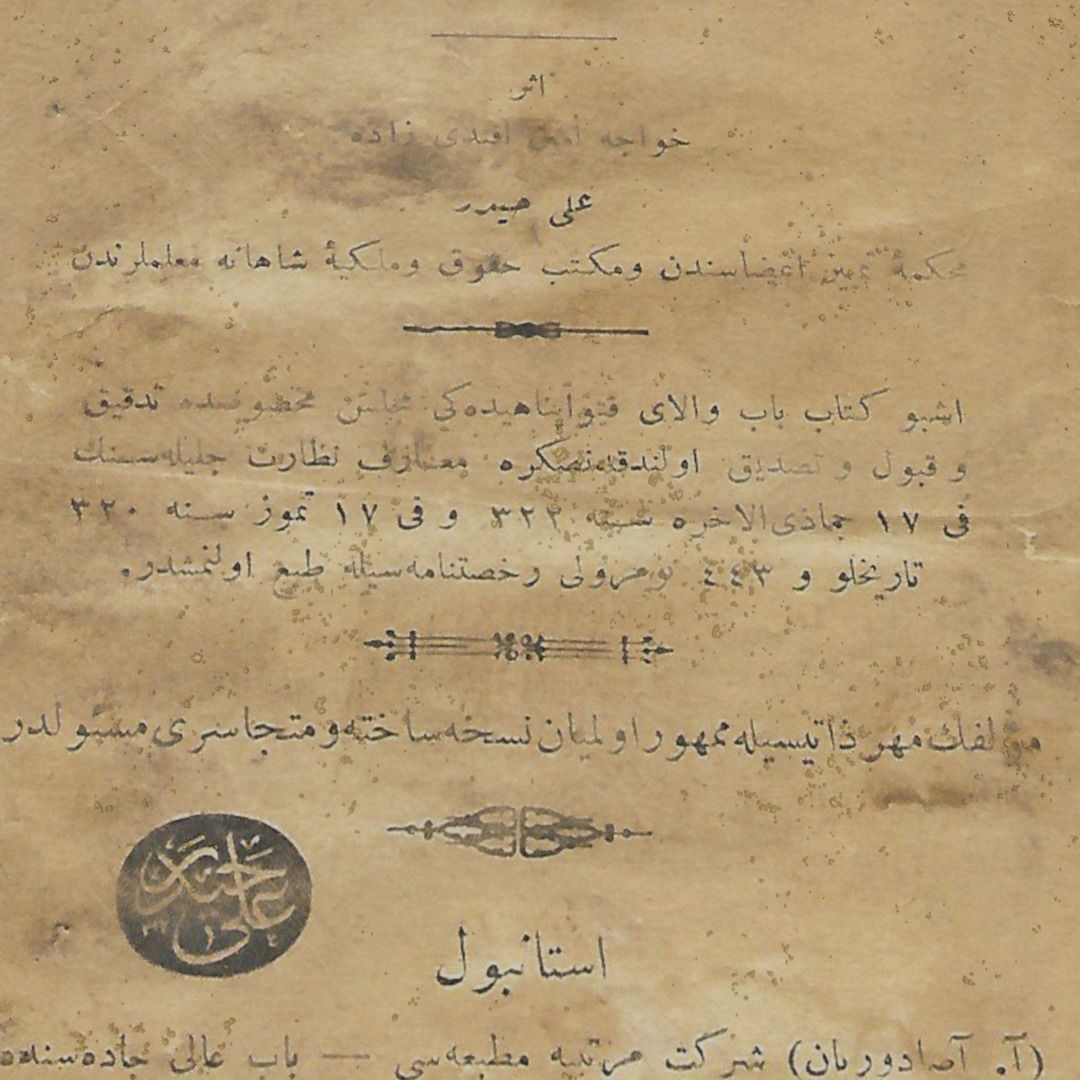 اثر
خواجه امین افندی زاده
علی حیدر
محكمهٔ تمییز اعضاسندن ومكتب حقوق وملكیهٔ شاهانه معلملرندن
اشبو كتاب باب والای فتواپناهیده‌كی مجلس مخصوصنده تدقیق
و قبول و تصدیق اولندقدنصكره معارف نظارت جلیله‌سنك
فی ١٧ جماذی‌الاخره سنه ٣٢٢ و فی ١٧ تموز سنه ٣٢٠
تاریخلو و ٤٤٣ نومرولی رخصتنامه‌سیله طبع اولنمشدر.
مؤلفك مهر ذاتیسیله ممهور اولمیان نسخه ساخته و متجاسری مسئولدر
علی حیدر
استانبول
(آ. آصادوریان) شركت مرتبیه مطبعه‌سی — باب عالی جاده‌سنده